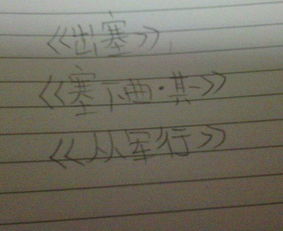 《出塞》,
《塞下曲·其一》
《从军行》